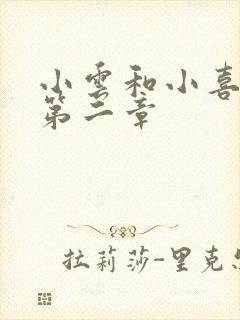 小雲和小喜
第二章
拉莉莎-里克